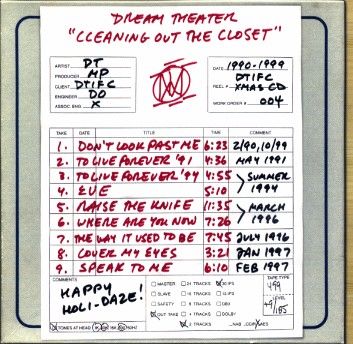 DREAM THEATER
"CLEANING OUT THE CLOSET"
ARTIST DT
PRODUCER MP
CLIENT DTIFC
ENGINEER DO
ASSOC. ENG. X
DATE 1990-1999
DTIFC
REEL # XMAS CD
WORK ORDER # 004
TAKE DATE TITLE TIME COMMENT
1. DON'T LOOK PAST ME 6:23 2/90, 10/99
2. TO LIVE FOREVER '91 4:36 MAY 1991
3. TO LIVE FOREVER '94 4:55 SUMMER
4. EVE 5:10 1994
5. RAISE THE KNIFE 11:35 MARCH
6. WHERE ARE YOU NOW 7:26 1996
7. THE WAY IT USED TO BE 7:45 JULY 1996
8. COVER MY EYES 3:21 JAN 1997
9. SPEAK TO ME 6:10 FEB 1997
COMMENTS
HAPPY
HOLI-DAZE!
MASTER 24 TRACKS 30 IPS
SLAVE 16 TRACKS 15 IPS
SAFETY DBX
OUT TAKE DOLBY
2 TRACKS
TAPE TYPE
499
LEVEL
TONES AT HEAD